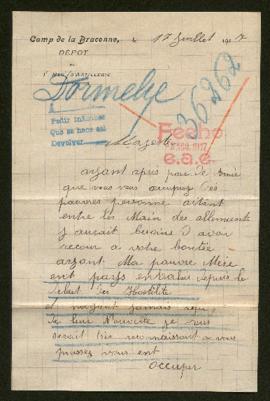 Camp de la Braconne, le 17 Juillet 1917
DEPOT
DU
D'ARTILLERIE
Dormelye
36262
Pedir informes
Que se hace así
Devolver
Fecho
AGO. 1917
e.a.e.
Majesté
ayant apris par
que vous vous occupez des
pauvres personne aitant
entre les Main des allemands
j aurait besoins d avoir
recour a votre bontée
ayant Ma pauvre Mère
ent pays envahie depuis le
debut des Hostilité
n ayant jamais reçu
de leur Nouvelle je vous
serait très reconnaissant si vous
pouviez vous ent
occuper